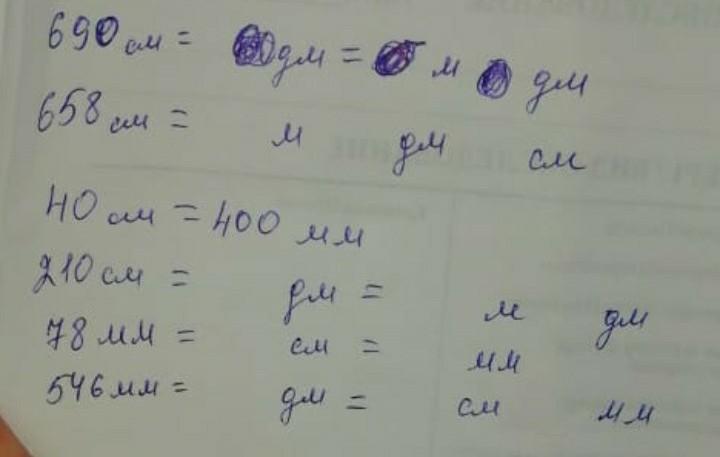 690 см = дм = м дм
658 см = м дм см
40 см = 400 мм
210 см = дм = м дм
78 мм = см = мм
546 мм = дм = см мм